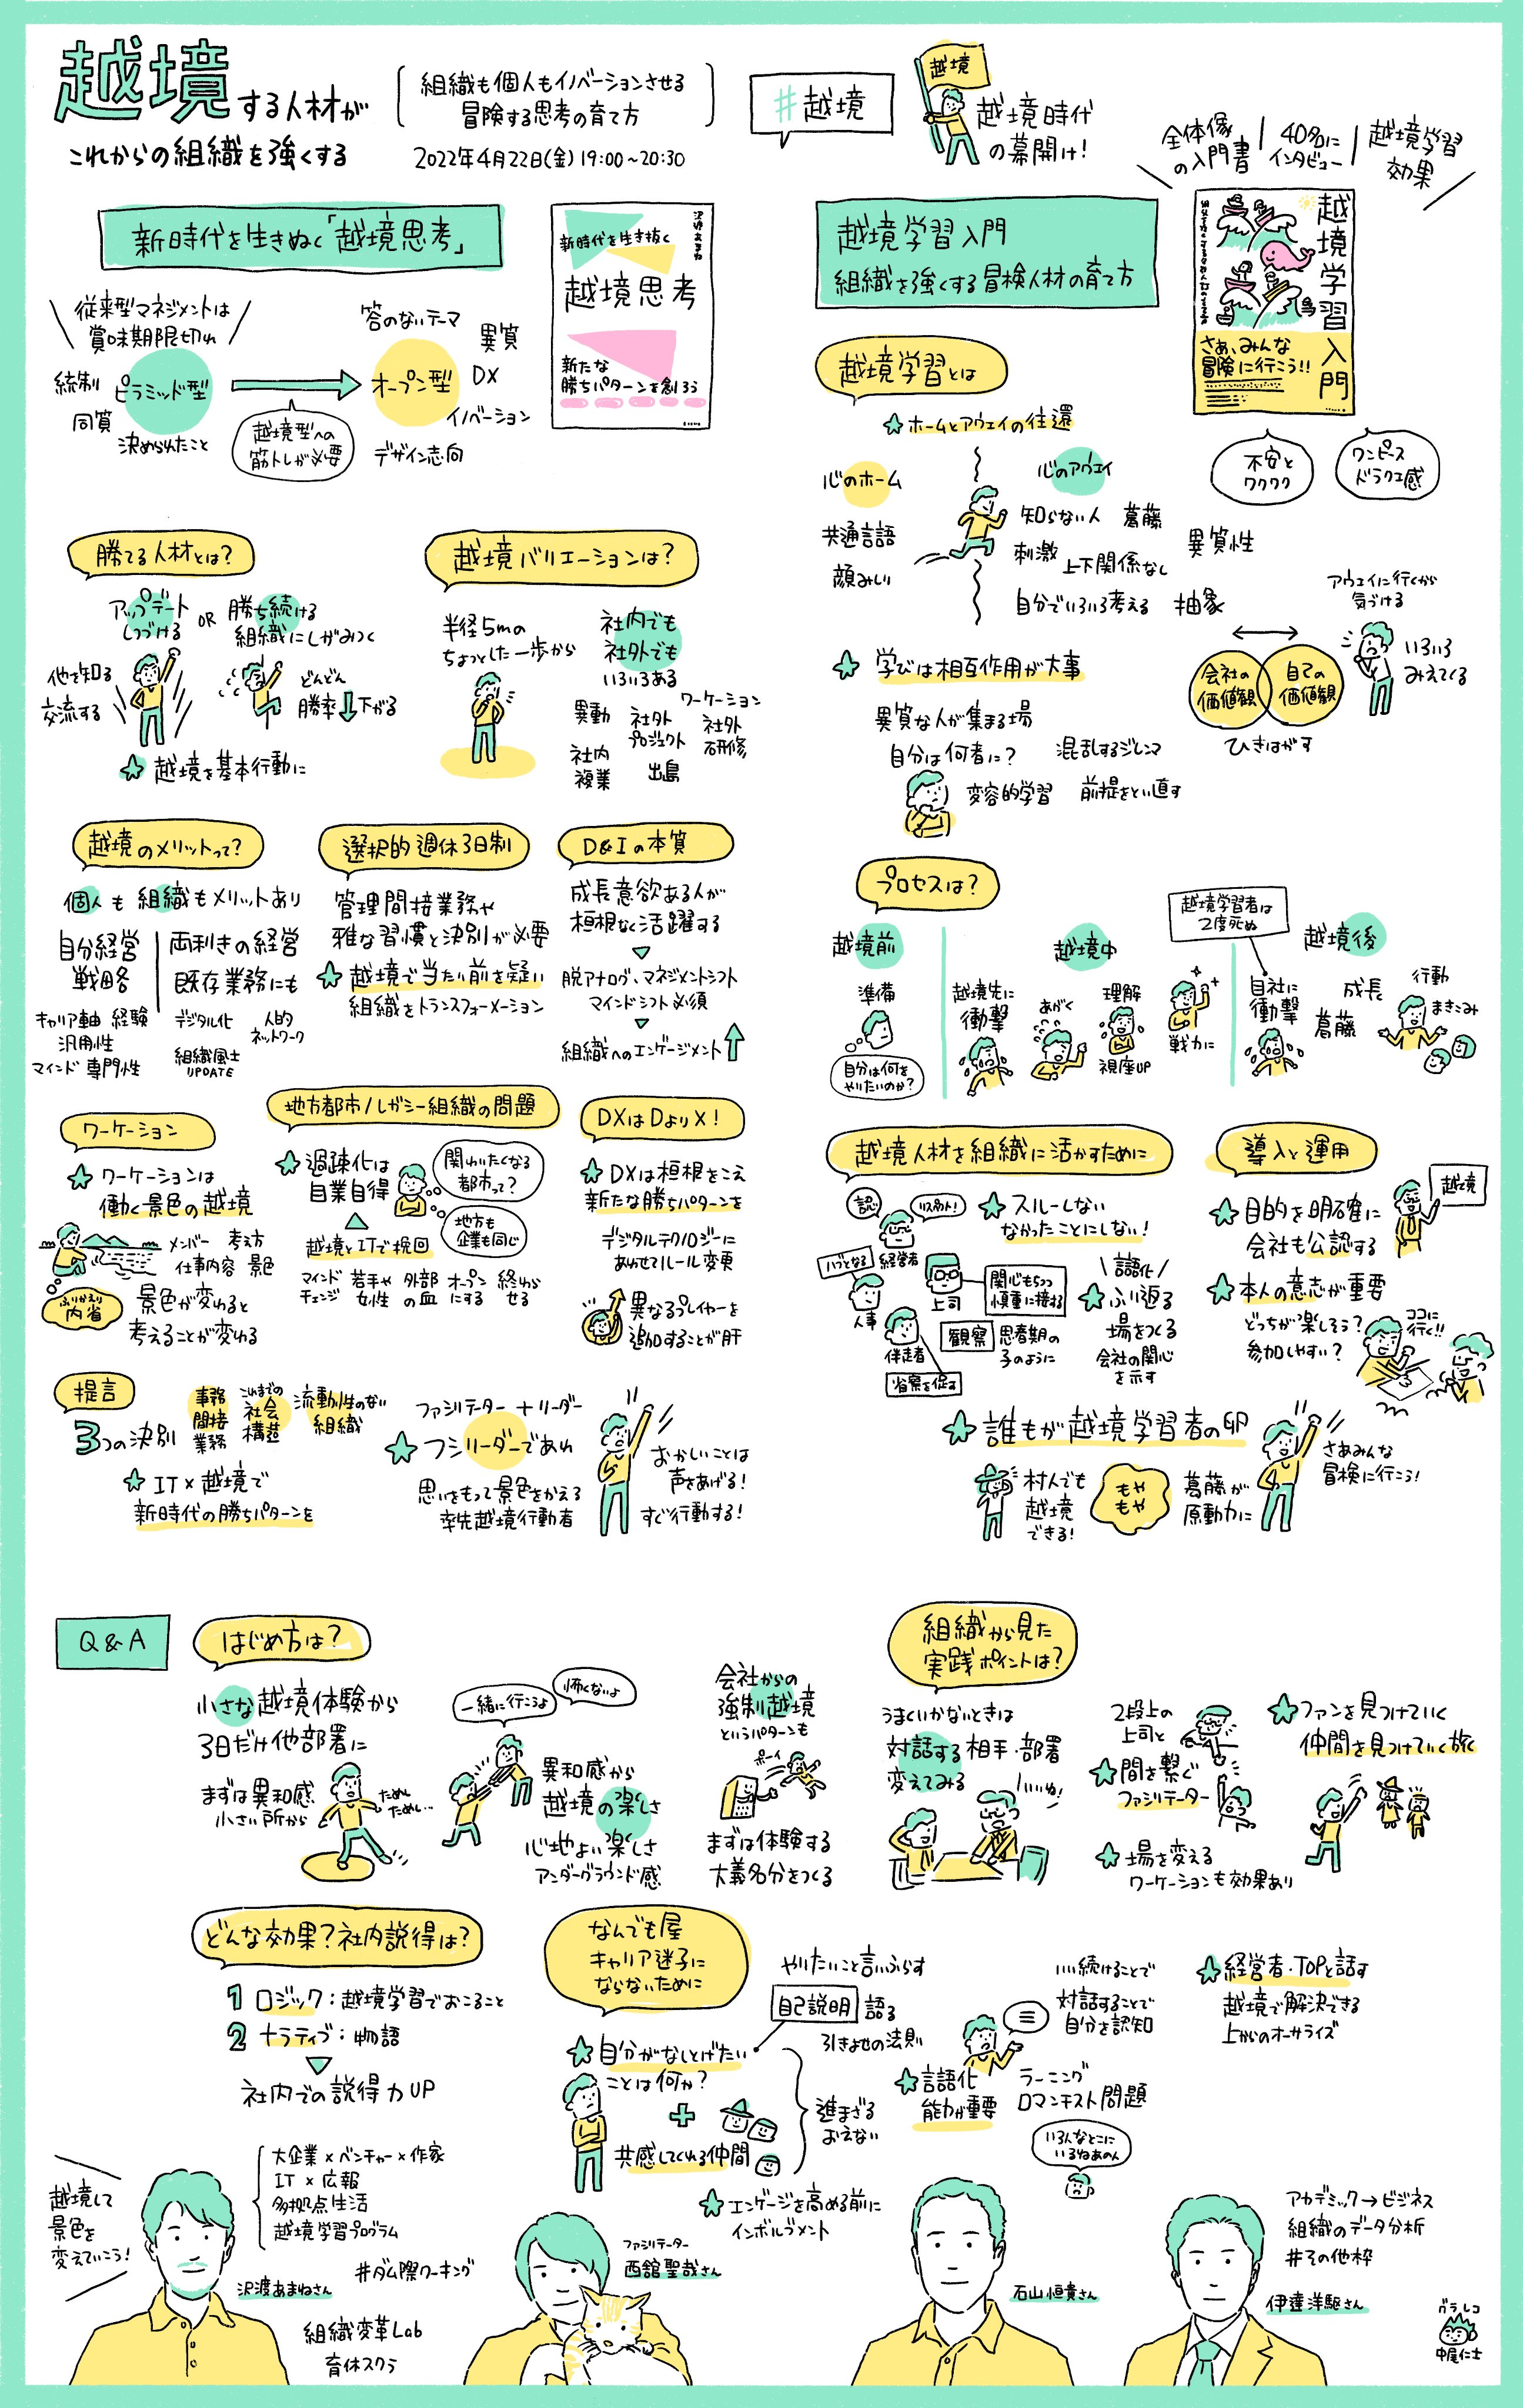 越境する人材が
これからの組織を強くする
組織も個人もイノベーションさせる
冒険する思考の育て方
2022年4月22日(金)19:00~20:30
#越境
越境
越境時代
の幕開け!
全体像
の入門書
40名に
インタビュー
越境学習
効果
新時代を生きぬく「越境思考」
新時代を生き抜く
越境思考
新たな
勝ちパターンを創ろう
従来型マネジメントは
賞味期限切れ
統制
ピラミッド型
同質
決められたこと
越境型への
筋トレが必要
答のないテーマ
異質
オープン型
DX
イノベーション
デザイン志向
勝てる人材とは?
アップデート
しつづける
OR
勝ち続ける
組織にしがみつく
他を知る
交流する
どんどん
勝率下がる
越境を基本行動に
越境バリエーションは?
半径5mの
ちょっとした一歩から
社内でも
社外でも
いろいろある
異動
社外
プロジェクト
ワーケーション
社外
研修
社内
複業
出島
越境のメリットって?
個人も組織もメリットあり
自分経営
戦略
両利きの経営
既存業務にも
キャリア軸 経験
汎用性
マインド 専門性
デジタル化
人的
ネットワーク
組織風土
UPDATE
選択的週休3日制
管理間接業務や
雅な習慣と決別が必要
越境で当たり前を疑い
組織をトランスフォーメーション
D&Iの本質
成長意欲ある人が
垣根なく活躍する
脱アナログ、マネジメントシフト
マインドシフト必須
組織へのエンゲージメント
ワーケーション
ワーケーションは
働く景色の越境
メンバー 考え方
仕事内容 景色
ふりかえり
内省
景色が変わると
考えることが変わる
地方都市/レガシー組織の問題
過疎化は
自業自得
関わりたくなる
都市って?
地方も
企業も同じ
越境とITで挽回
マインド
チェンジ
若手や
女性
外部
の血
オープン
にする
終わら
せる
DXはDよりX!
DXは垣根をこえ
新たな勝ちパターンを
デジタルテクノロジーに
あわせてルール変更
異なるプレイヤーを
追加することが肝
提言
3つの決別
事務
間接
業務
これまでの
社会
構造
流動性のない
組織
IT×越境で
新時代の勝ちパターンを
ファシリテーター+リーダー
ファシリーダーであれ
思いをもって景色をかえる
率先越境行動者
おかしいことは
声をあげる!
すぐ行動する!
越境学習入門
組織を強くする冒険人材の育て方
越境学習入門
さあ、みんな
冒険に行こう!!
不安と
ワクワク
ワンピース
ドラクエ感
越境学習とは
ホームとアウェイの往還
心のホーム
共通言語
顔みしり
心のアウェイ
知らない人 葛藤
刺激
上下関係なし
異質性
自分でいろいろ考える 抽象
アウェイに行くから
気づける
会社の
価値観
自己の
価値観
いろいろ
みえてくる
ひきはがす
学びは相互作用が大事
異質な人が集まる場
自分は何者に?
混乱するジレンマ
変容的学習
前提をとい直す
プロセスは?
越境前
準備
自分は何を
やりたいのか?
越境中
越境先に
衝撃
あがく
理解
視座UP
戦力に
越境学習者は
2度死ぬ
越境後
自社に
衝撃
成長
葛藤
行動
まきこみ
越境人材を組織に活かすために
認
リスペクト!
経営者
ハブとなる
人事
上司
関心もちつつ
慎重に接する
伴走者
観察
思春期の
子のように
省察を促す
スルーしない
なかったことにしない!
言語化
ふり返る
場をつくる
会社の関心
を示す
導入と運用
越境
目的を明確に
会社も公認する
本人の意志が重要
どっちが楽しそう?
参加しやすい?
ココに
行く!!
誰もが越境学習者の卵
村人でも
越境
できる!
もや
もや
葛藤が
原動力に
さあみんな
冒険に行こう!
Q&A
はじめ方は?
小さな越境体験から
3日だけ他部署に
まずは異和感
小さい所から
ためし
ためし…
一緒に行こうよ
怖くないよ
異和感から
越境の楽しさ
心地よい楽しさ
アンダーグラウンド感
会社からの
強制越境
というパターンも
ポーイ
まずは体験する
大義名分をつくる
組織から見た
実践ポイントは?
うまくいかないときは
対話する相手・部署
変えてみる
いいね!
2段上の
上司と
間を繋ぐ
ファシリテーター
場を変える
ワーケーションも効果あり
ファンを見つけていく
仲間を見つけていく旅
どんな効果?社内説得は?
1 ロジック:越境学習でおこること
2 ナラティブ:物語
社内での説得力UP
なんでも屋
キャリア迷子に
ならないために
やりたいこと言いふらす
自己説明 語る
引きよせの法則
自分がなしとげたい
ことは何か?
共感してくれる仲間
進まざる
おえない
言い続けることで
対話することで
自分を認知
言語化
能力が重要
ラーニング
ロマンチスト問題
いろんなとこに
いるねあの人
経営者・TOPと話す
越境で解決できる
上からのオーサライズ
エンゲージを高める前に
インボルブメント
越境して
景色を
変えていこう!
大企業×ベンチャー×作家
IT×広報
多拠点生活
越境学習プログラム
沢渡あまねさん
#ダム際ワーキング
組織変革Lab
育休スクラ
ファシリテーター
西舘聖哉さん
石山恒貴さん
アカデミック→ビジネス
組織のデータ分析
#その他枠
伊達洋駆さん
グラレコ
中尾仁士